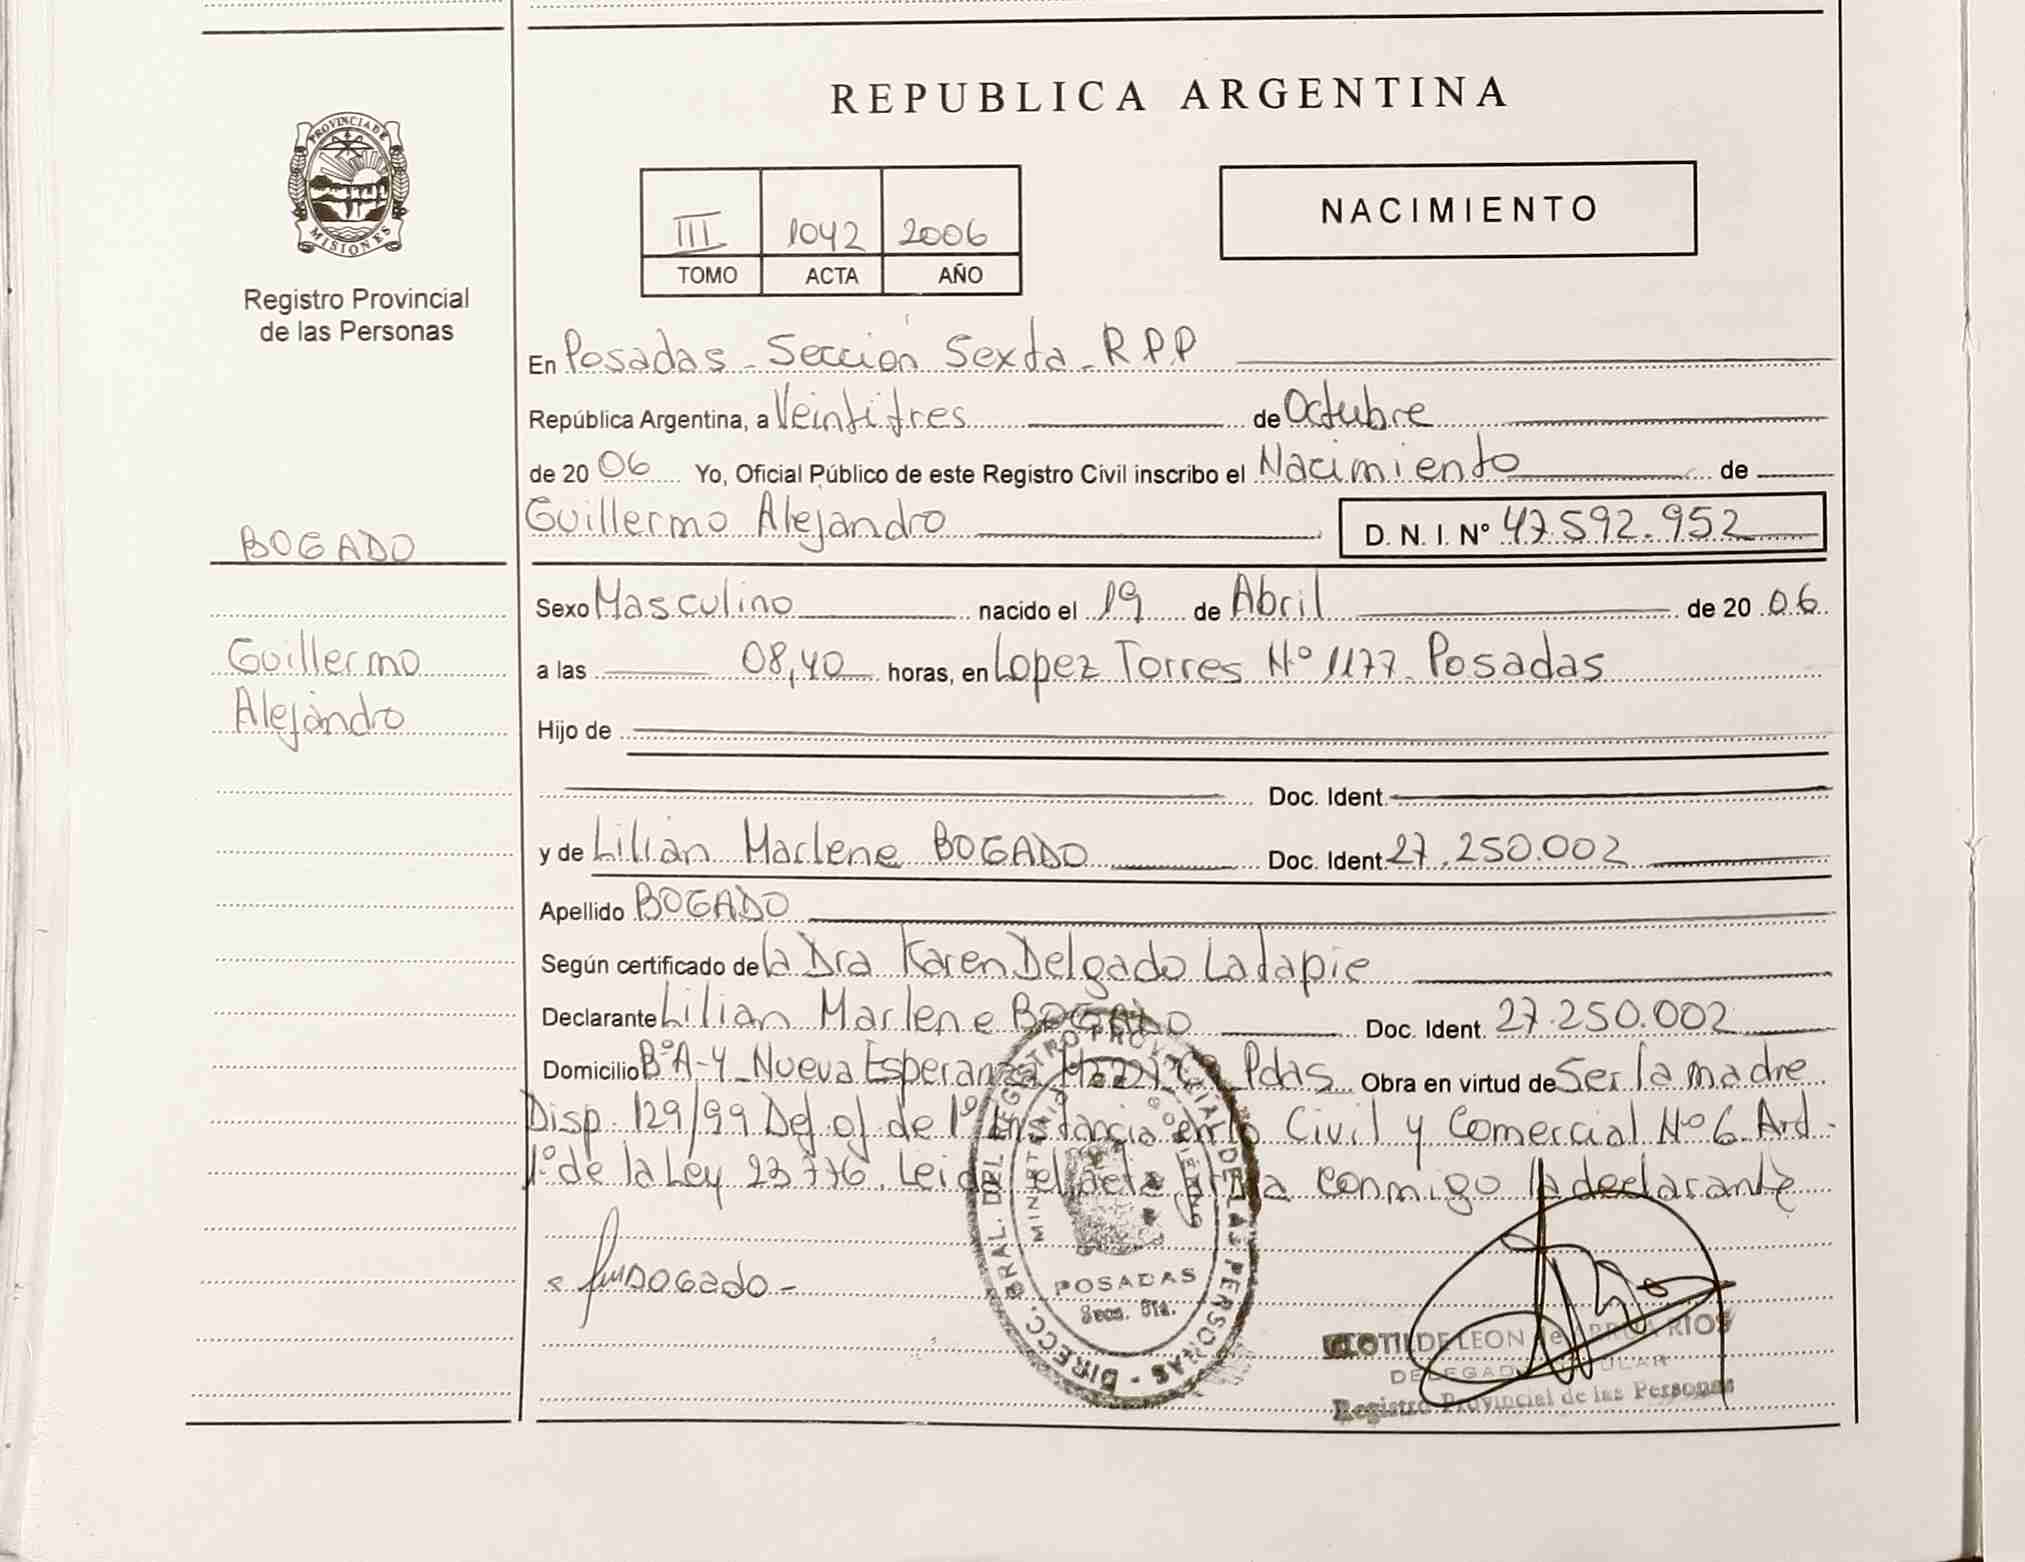 REPUBLICA ARGENTINA
PROVINCIA DE
MISIONES
Registro Provincial
de las Personas
III 1042 2006
TOMO ACTA AÑO
NACIMIENTO
En Posadas - Sección Sexta - R P P
República Argentina, a Veintitres de Octubre
de 20 06 Yo, Oficial Público de este Registro Civil inscribo el Nacimiento de
Guillermo Alejandro D. N. I. Nº 47.592.952
BOGADO
Guillermo
Alejandro
Sexo Masculino nacido el 19 de Abril de 20 06
a las 08,40 horas, en Lopez Torres Nº 1177 - Posadas
Hijo de
Doc. Ident.
y de Lilian Marlene BOGADO Doc. Ident. 27.250.002
Apellido BOGADO
Según certificado de la Dra Karen Delgado Latapie
Declarante Lilian Marlene BOGADO Doc. Ident. 27.250.002
Domicilio Bº A-4 - Nueva Esperanza Pdas Obra en virtud de Ser la madre
Disp. 129/99 Def of de 1º Instancia en lo Civil y Comercial Nº 6. Art.
1º de la Ley 23776. Leida el acta firma conmigo la declarante
Bogado -
DIRECC. GRAL. DEL REGISTRO PROVINCIAL DE LAS PERSONAS
MINISTERIO GOBIERNO
POSADAS
Secc. 6ta.
CLOTILDE LEON de RIOS
DELEGADA TITULAR
Registro Provincial de las Personas